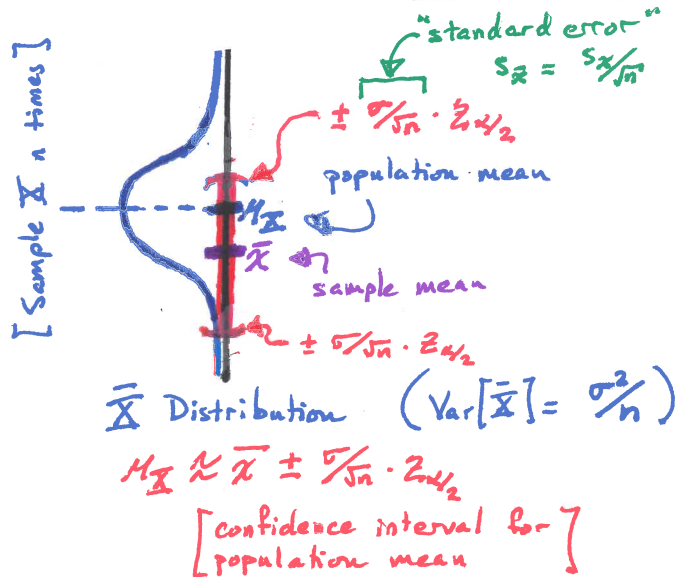 "standard error"
s_x̄ = s_x/√n
± σ/√n · Z_α/2
population mean
[Sample X n times]
μ_X
x̄
sample mean
± σ/√n · Z_α/2
X̄ Distribution (Var[X̄] = σ²/n)
μ_X ≈ x̄ ± σ/√n · Z_α/2
[confidence interval for
population mean]